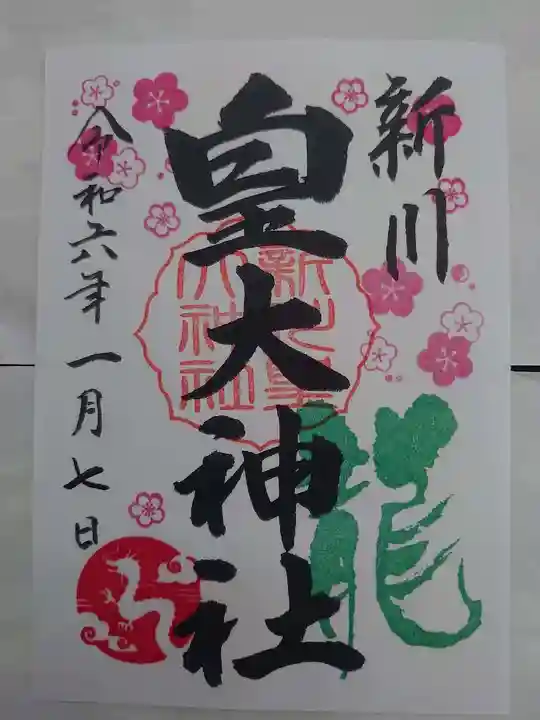 新川
皇大神社
龍
新川皇
大神社
令和六年一月七日